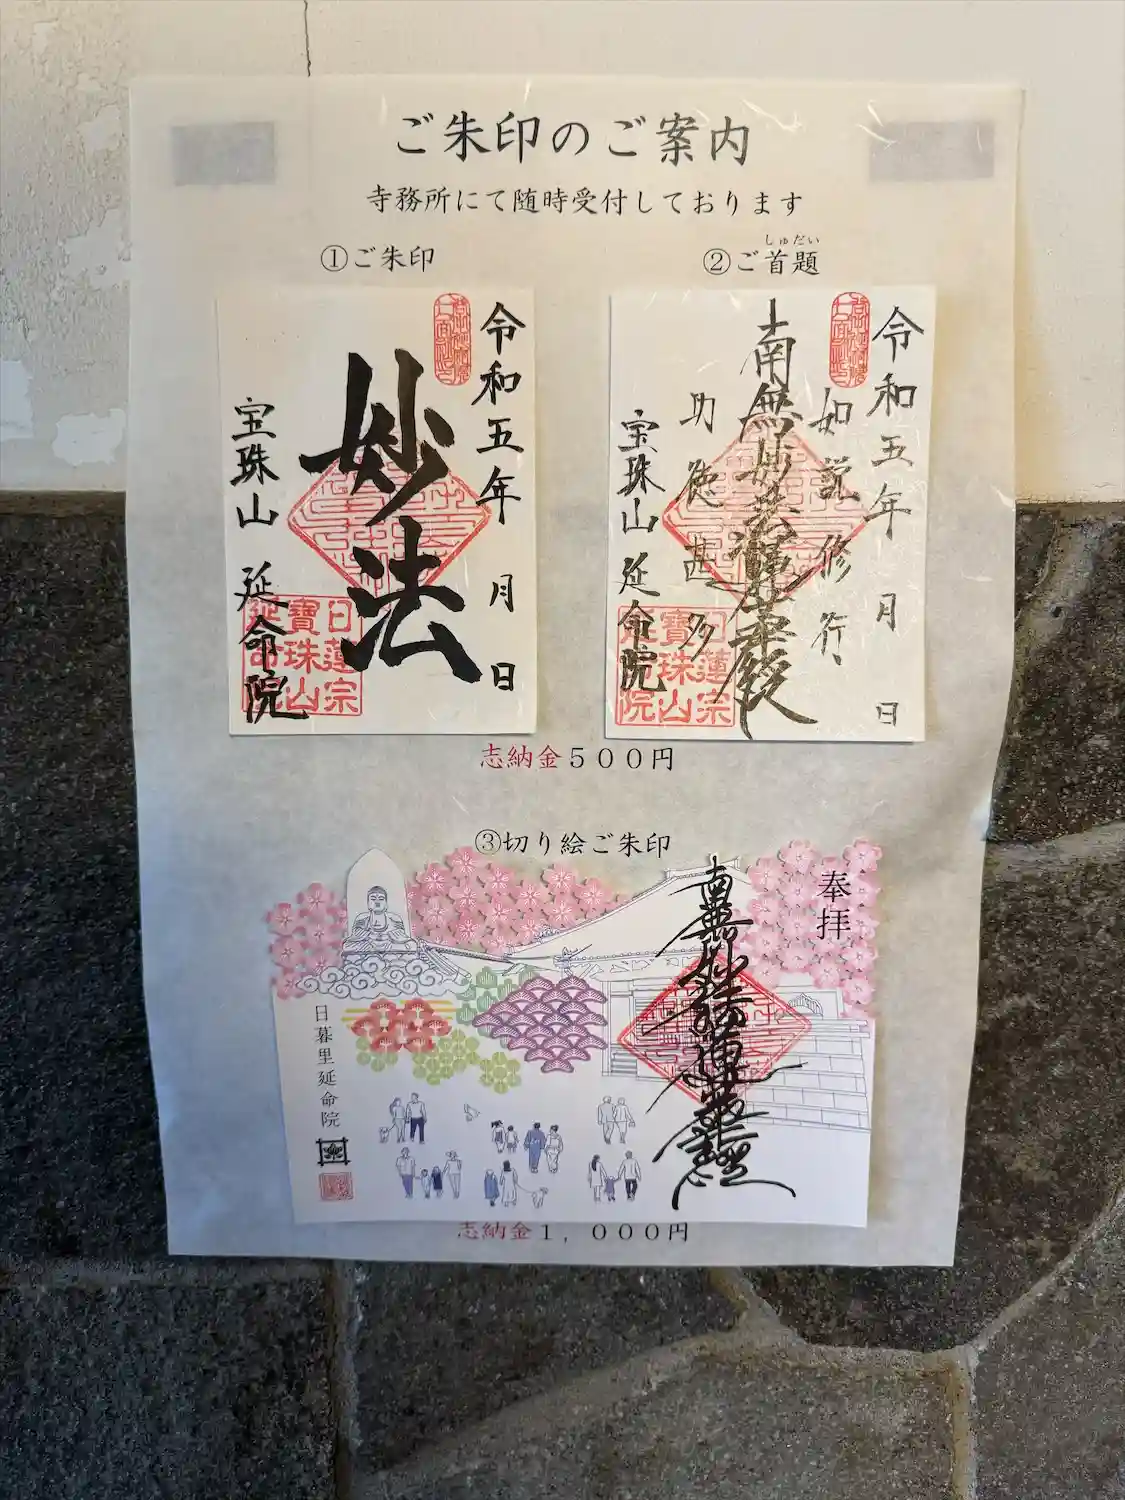 ご朱印のご案内
寺務所にて随時受付しております
①ご朱印
令和五年 月 日
妙法
宝珠山 延命院
日蓮宗
寶珠山
延命院
②ご首題
しゅだい
令和五年 月 日
如説修行
南無妙法蓮華経
功徳甚多
宝珠山 延命院
日蓮宗
寶珠山
延命院
志納金５００円
③切り絵ご朱印
奉拝
南無妙法蓮華経
日暮里延命院
志納金１，０００円